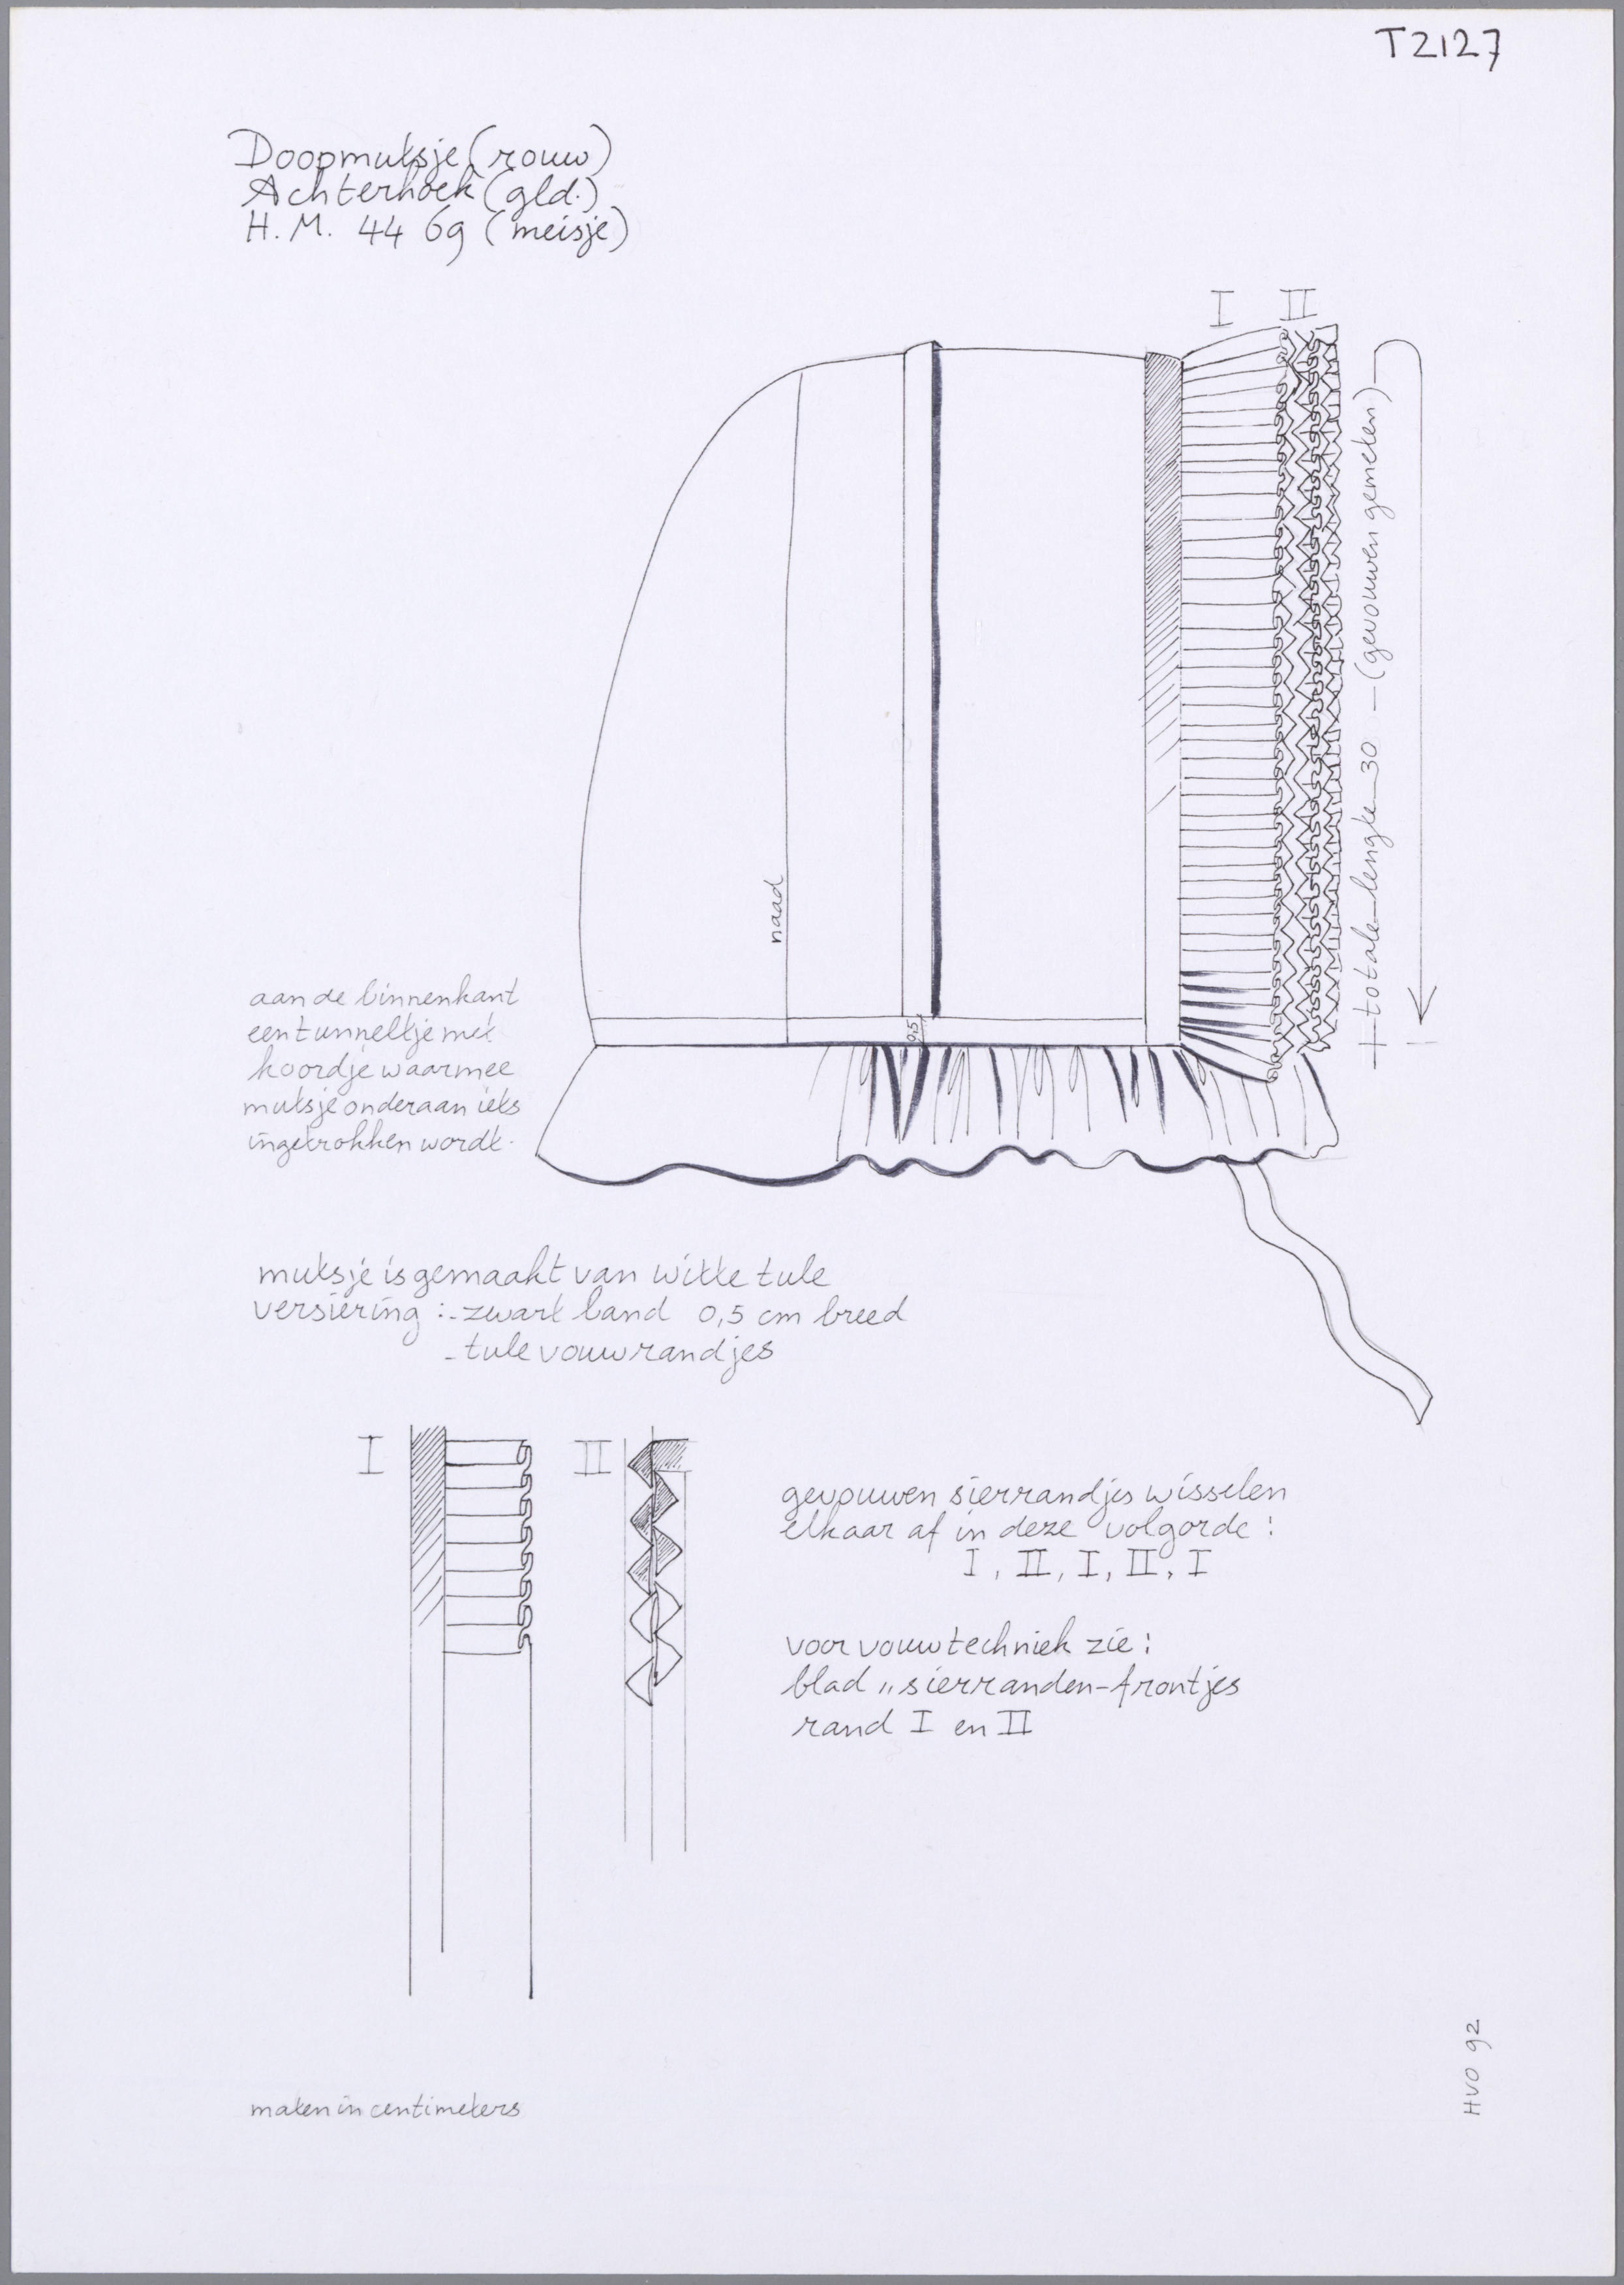 T2127
Doopmutsje (rouw)
Achterhoek (gld.)
H.M. 44 69 (meisje)
I II
totale lengte 30 - (gevouwen gemeten)
naad
0,5
aan de binnenkant
een tunneltje met
koordje waarmee
mutsje onderaan iets
ingetrokken wordt.
mutsje is gemaakt van witte tule
versiering :- zwart band 0,5 cm breed
- tule vouwrandjes
I II
gevouwen sierrandjes wisselen
elkaar af in deze volgorde :
I, II, I, II, I
voor vouwtechniek zie :
blad „sierranden-frontjes
rand I en II
HVO 92
maten in centimeters